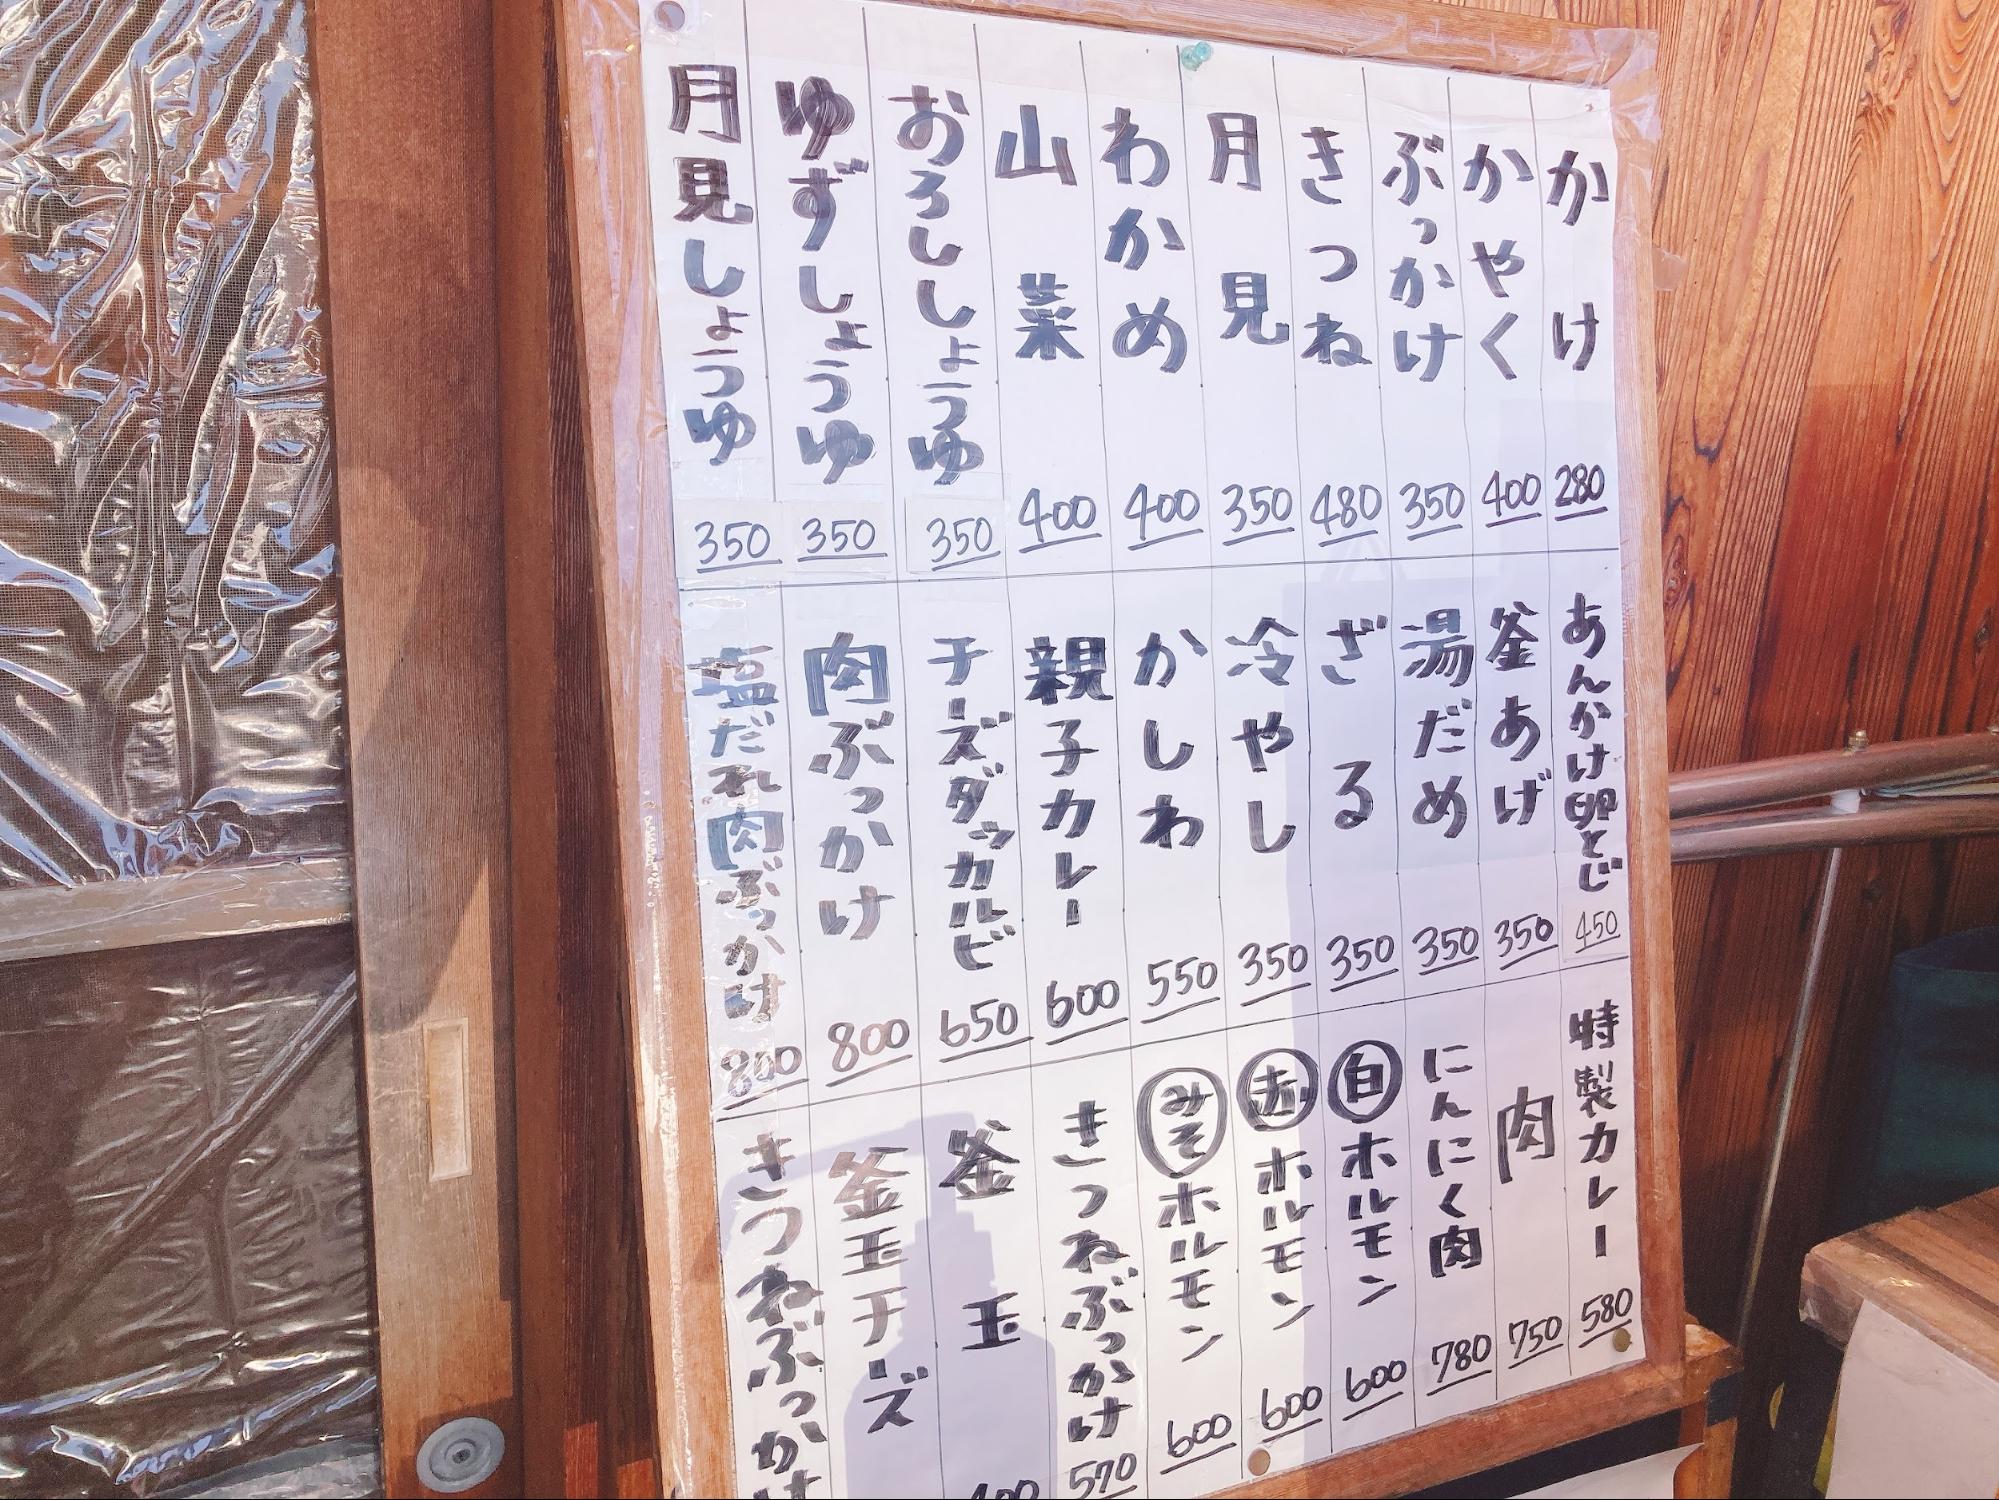 かけ 280
かやく 400
ぶっかけ 350
きつね 480
月見 350
わかめ 400
山菜 400
おろししょうゆ 350
ゆずしょうゆ 350
月見しょうゆ 350
あんかけ卵とじ 450
釜あげ 350
湯だめ 350
ざる 350
冷やし 350
かしわ 550
親子カレー 600
チーズダッカルビ 650
肉ぶっかけ 800
塩だれ肉ぶっかけ 800
特製カレー 580
肉 750
にんにく肉 780
白ホルモン 600
赤ホルモン 600
みそホルモン 600
きつねぶっかけ 570
釜玉 400
釜玉チーズ
きつねぶっかけ